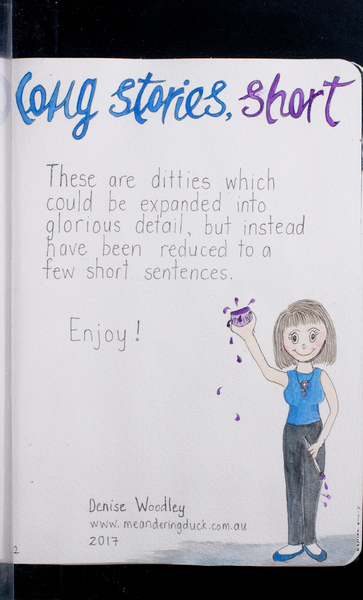 Long stories, short
These are ditties which
could be expanded into
glorious detail, but instead
have been reduced to a
few short sentences.
Enjoy!
Denise Woodley
www.meanderingduck.com.au
2017
2